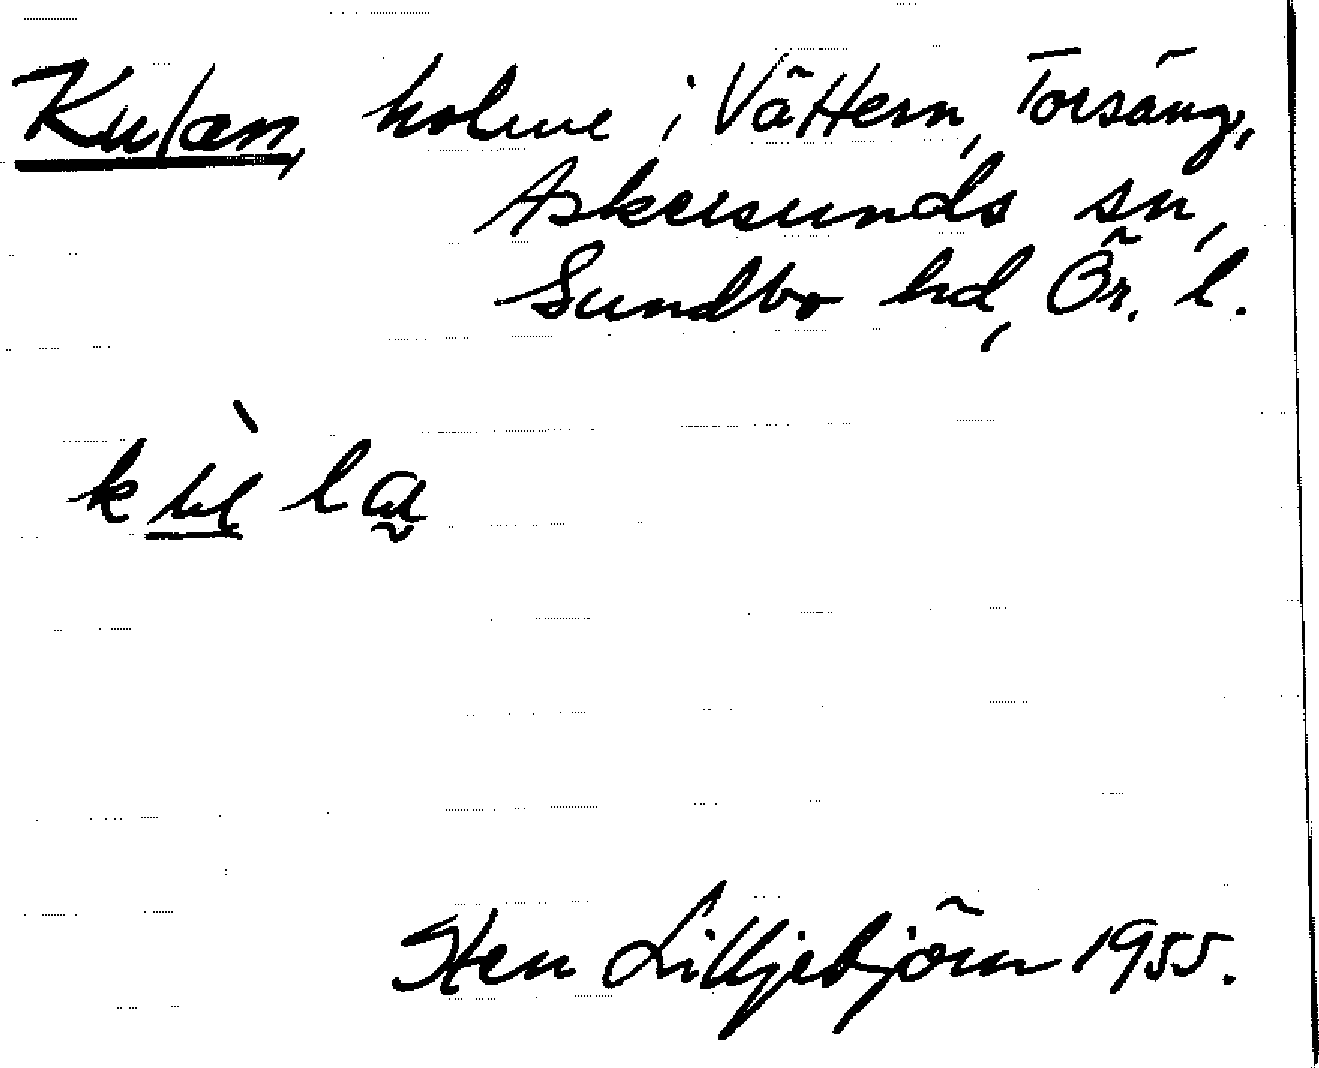 Kulan, holme i Vättern, Torsäng,
Askersunds sn,
Sundbo hd, Ör. l.
kùla
Sten Lilljebjörn 1955.